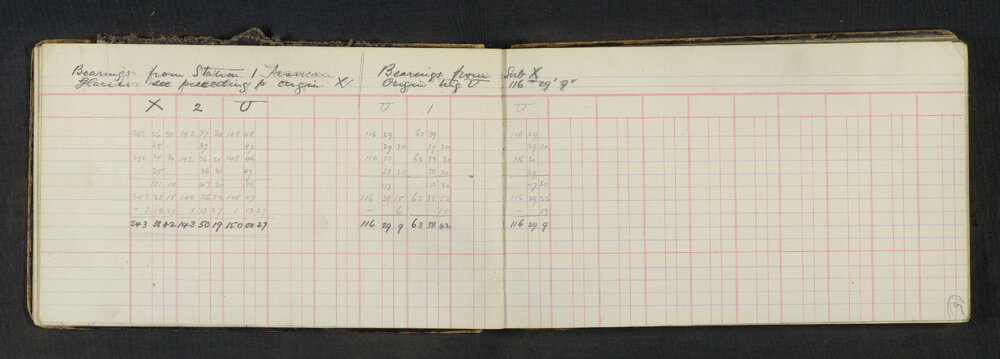 Bearings from Station 1 Tasman
Glacier see preceding p Origin X
Bearings from Sub X
Origin trig U 116° 29' 9"
X 2 U U 1 U
242 26 30 142 37 30 148 48 116 29 63 39 116 29
25 37 47 29 30 39 20 29 30
142 36 30 148 46 116 30 63 39 20 116 30
25 36 30 47 28 30 38 20
101 147 30 17 17 30
242 25 15 142 36 52 148 47 116 29 15 63 38 52 116 29 22
1 13 27 1 13 27 1 13 27 - 6 10 - 13
243 38 42 143 50 19 150 00 27 116 29 9 63 38 42 116 29 9